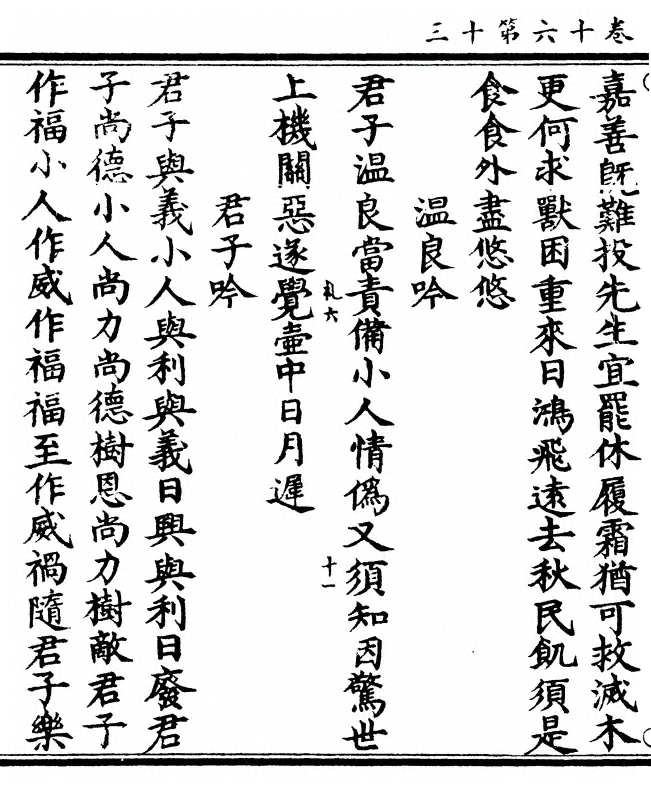 卷十六第十三
嘉善既難投先生宜罷休履霜猶可救滅木
更何求獸困重來日鴻飛遠去秋民飢須是
食食外盡悠悠
温良吟
君子温良當責備小人情偽又須知因驚世
上機關惡遂覺壺中日月遲
札六
十一
君子吟
君子與義小人與利與義日興與利日廢君
子尚德小人尚力尚德樹恩尚力樹敵君子
作福小人作威作福福至作威禍隨君子樂